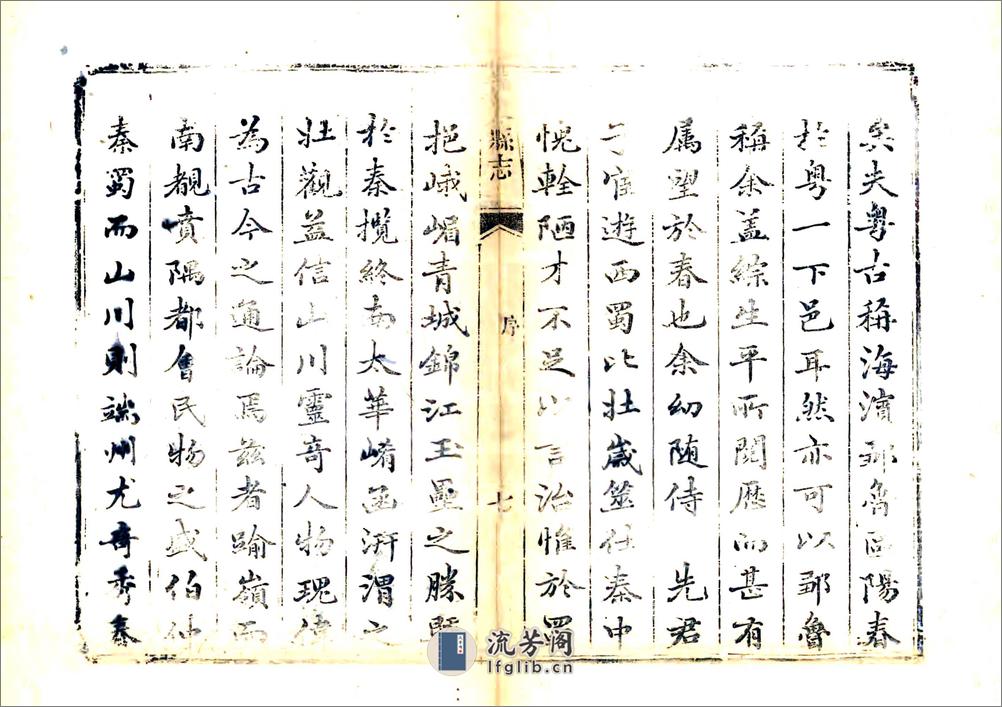 矣夫粤古稱海濱鄒魯而陽春
於粤一下邑耳然亦可以鄒魯
稱余盖綜生平所閱歷而甚有
属望於春也余幼随侍 先君
子宦遊西蜀比壮歳筮仕秦中
愧輇陋才不足以言治惟於
縣志
序
七
挹峨嵋青城錦江玉壘之勝
於秦攬終南太華崤函汧渭之
壮觀益信山川靈竒人物瑰偉
為古今之通論焉兹者踰嶺而
南覩賁隅都會民物之盛伯仲
秦蜀而山川則端州尤竒秀春
流芳阁
lfglib.cn